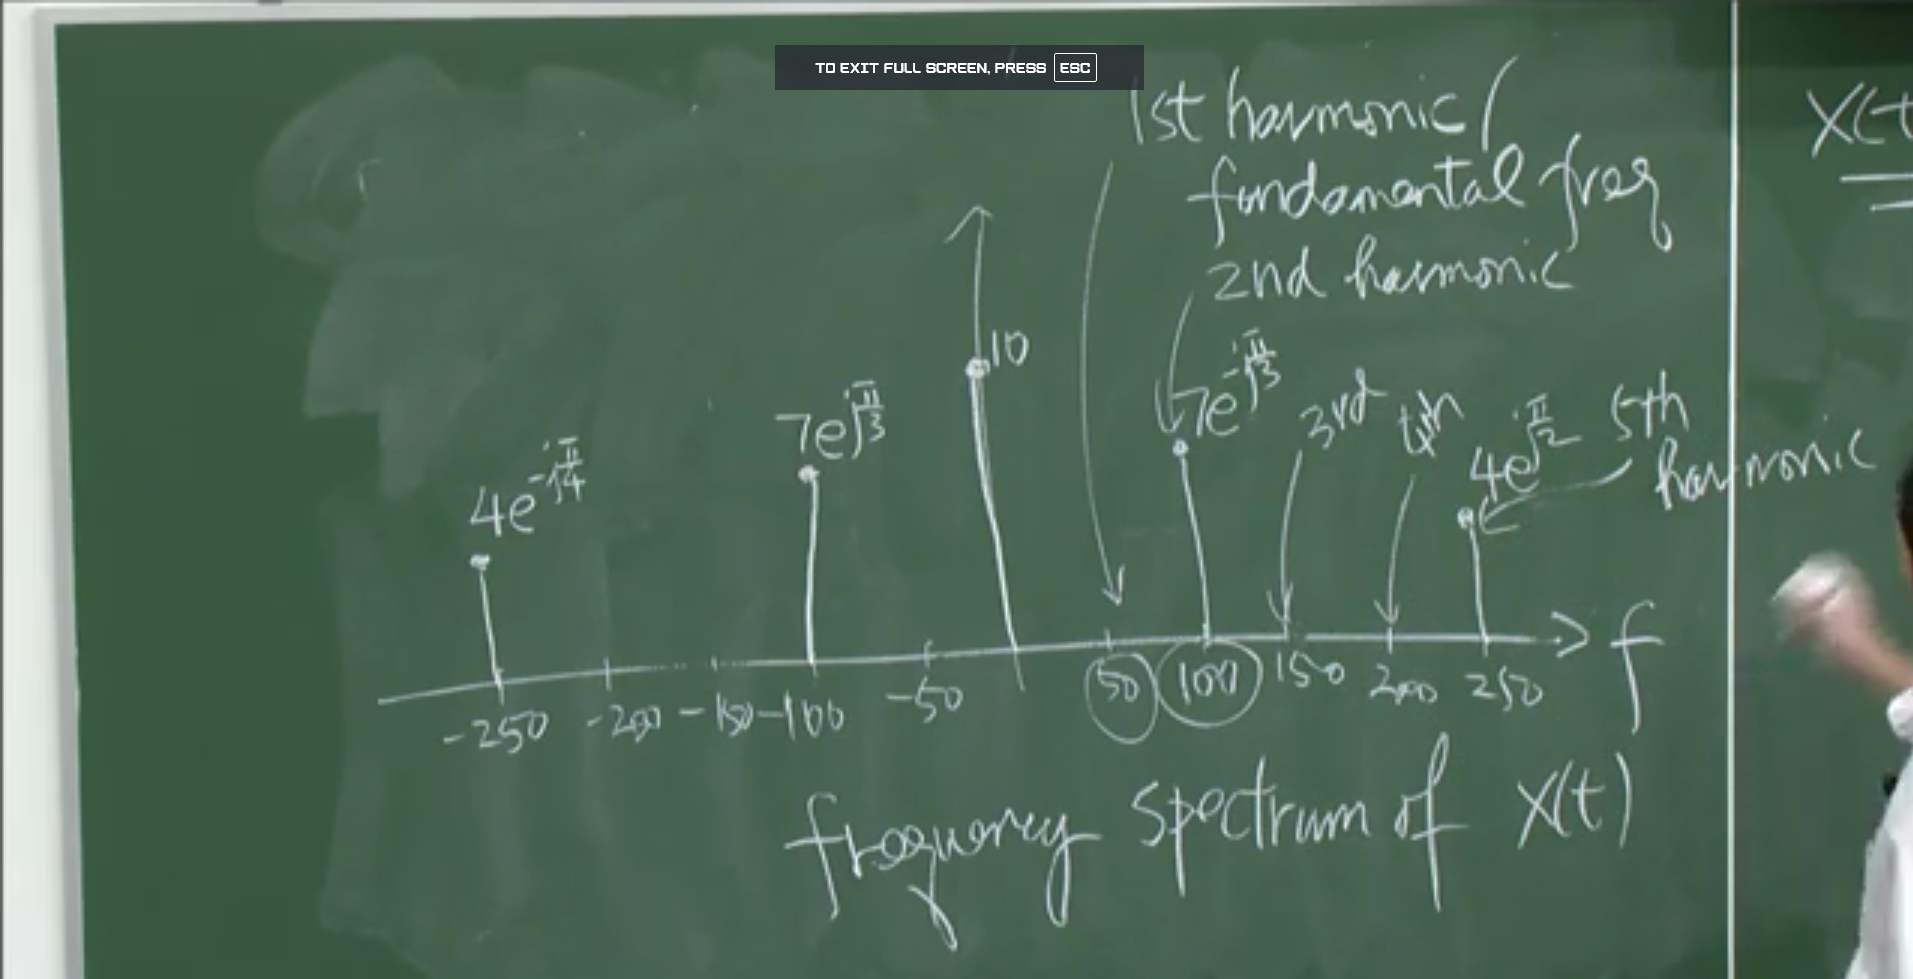 TO EXIT FULL SCREEN, PRESS ESC
1st harmonic /
fundamental freq
2nd harmonic
X(t
10
7e^{-jπ/3}
3rd
4th
5th
harmonic
4e^{jπ/2}
7e^{jπ/3}
4e^{-jπ/4}
-250 -200 -150 -100 -50 50 100 150 200 250
f
frequency spectrum of X(t)